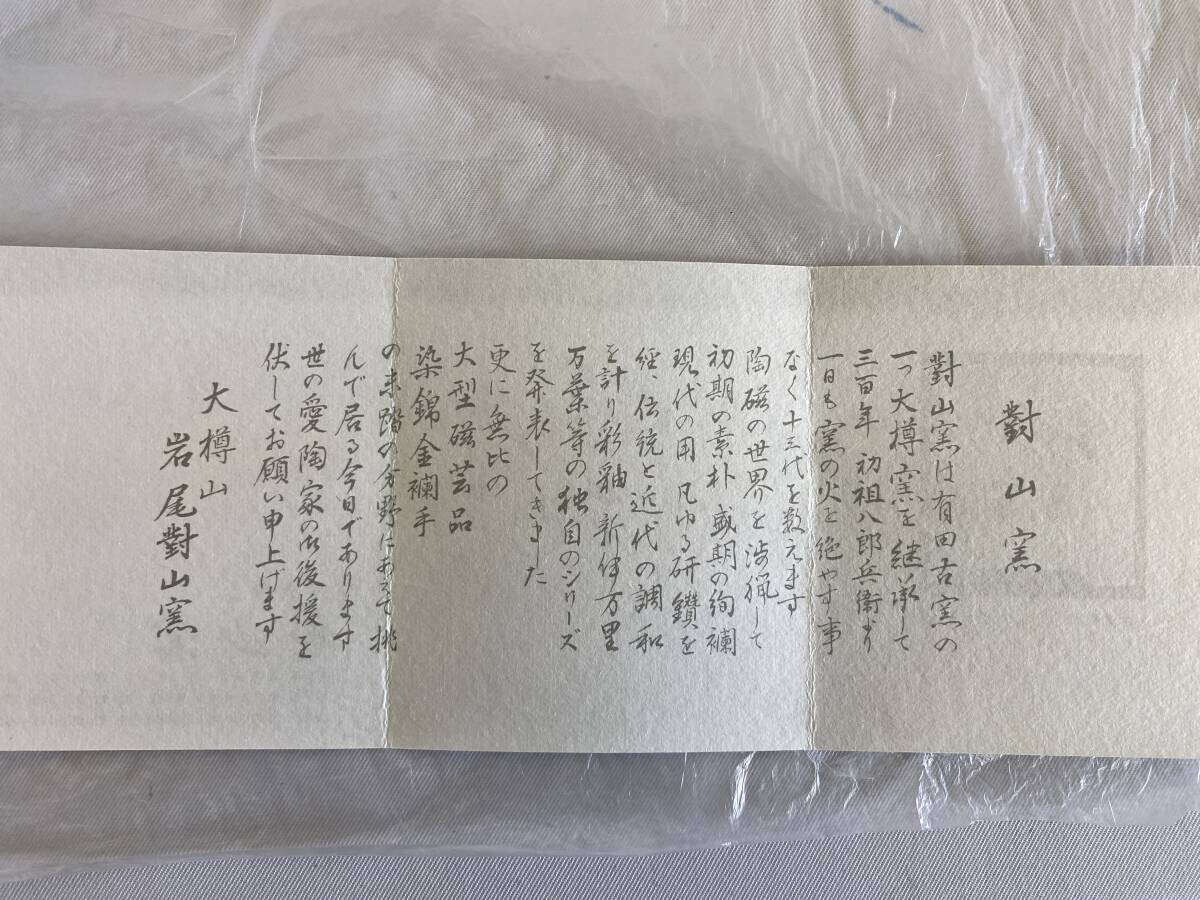 對山窯
對山窯は有田古窯の
一つ大樽窯を継承して
三百年 初祖八郎兵衛より
一日も窯の火を絶やす事
なく十三代を数えます
陶磁の世界を渉猟して
初期の素朴 盛期の絢襴
現代の用 凡ゆる研鑽を
経、伝統と近代の調和
を計り彩釉 新伊万里
万葉等の独自のシリーズ
を発表してきました
更に無比の
大型磁芸品
染錦金襴手
の未踏の分野にあえて挑
んで居る今日であります
世の愛陶家の御後援を
伏してお願い申上げます
大樽山
岩尾對山窯